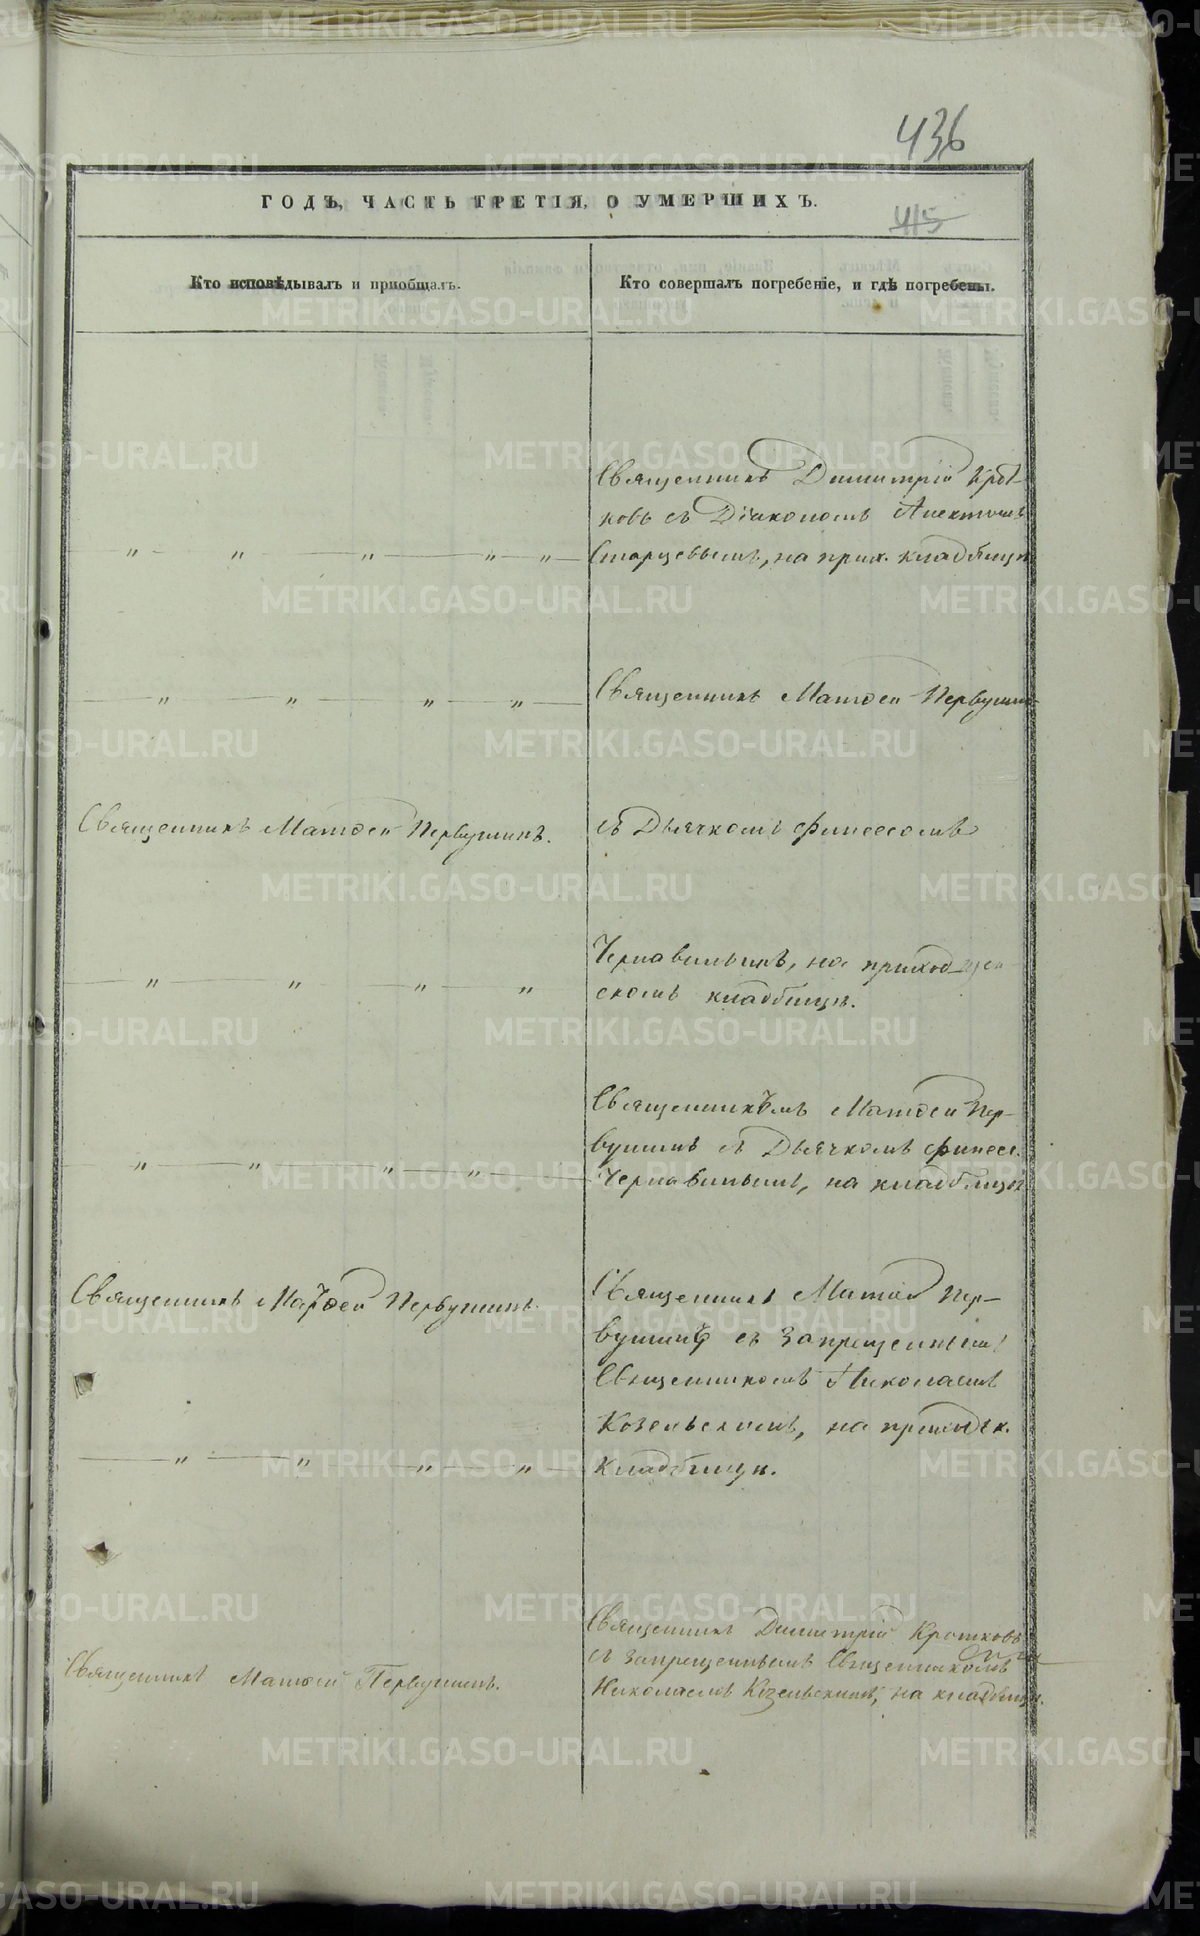 436
ГОДЪ, ЧАСТЬ ТРЕТІЯ, О УМЕРШИХЪ.
415
Кто исповѣдывалъ и пріобщалъ.
Кто совершалъ погребеніе, и гдѣ погребены.
Священникъ Димитрій Крот-
ковъ съ Діакономъ
" " " " " Старцевымъ, на прих. кладбищѣ
" " " " Священникъ Матѳей Первушинъ
Священникъ Матѳей Первушинъ. съ Дьячкомъ Финеесомъ
Чернавинымъ, на приход
" " " " скомъ кладбищѣ.
Священникъ Матѳей Пер-
вушинъ съ Дьячкомъ Финеес.
" " " " Чернавинымъ, на кладбищѣ
Священникъ Матѳей Первушинъ.
Священникъ Матѳей Пер-
вушинъ съ запрещеннымъ
Священникомъ Николаемъ
Козельскимъ, на приходск.
" " " " кладбищѣ.
Священникъ Димитрій Кротковъ
съ запрещеннымъ Священникомъ
Священникъ Матѳей Первушинъ.
Николаемъ Козельскимъ, на кладбищѣ.
METRIKI.GASO-URAL.RU